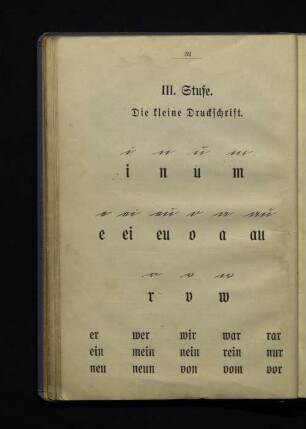 32
III. Stufe.
Die kleine Druckschrift.
i n ŭ m
i n u m
e ei eŭ o a aŭ
e ei eu o a au
r v w
r v w
er wer wir war rar
ein mein nein rein nur
neu neun von vom vor